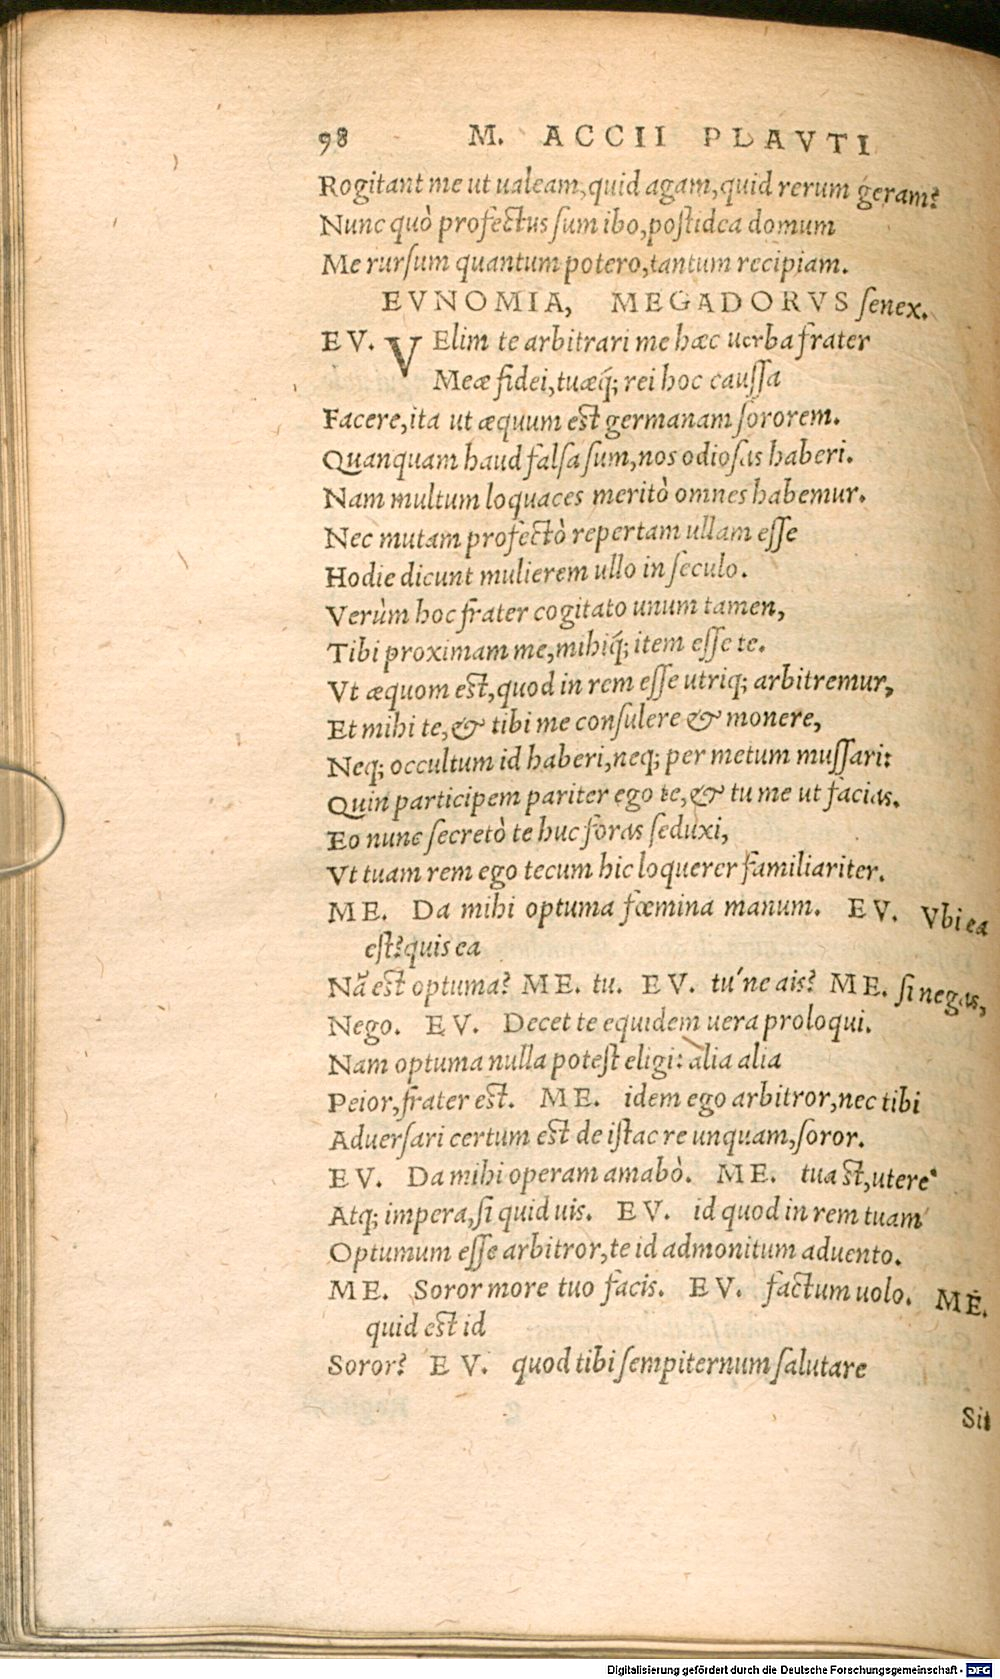 98 M. ACCII PLAVTI
Rogitant me ut ualeam, quid agam, quid rerum geram?
Nunc quò profectus sum ibo, postidea domum
Me rursum quantum potero, tantum recipiam.
EVNOMIA, MEGADORVS senex.
EV. VElim te arbitrari me hæc uerba frater
Meæ fidei, tuæq́; rei hoc caussa
Facere, ita ut æquum est germanam sororem.
Quanquam haud falsa sum, nos odiosas haberi.
Nam multum loquaces meritò omnes habemur.
Nec mutam profectò repertam ullam esse
Hodie dicunt mulierem ullo in seculo.
Verùm hoc frater cogitato unum tamen,
Tibi proximam me, mihiq́; item esse te.
Vt æquom est, quod in rem esse utriq; arbitremur,
Et mihi te, & tibi me consulere & monere,
Neq; occultum id haberi, neq; per metum mussari:
Quin participem pariter ego te, & tu me ut facias.
Eo nunc secretò te huc foras seduxi,
Vt tuam rem ego tecum hic loquerer familiariter.
ME. Da mihi optuma fœmina manum. EV. Vbi ea
est? quis ea
Nā est optuma? ME. tu. EV. tu'ne ais? ME. si negas,
Nego. EV. Decet te equidem uera proloqui.
Nam optuma nulla potest eligi: alia alia
Peior, frater est. ME. idem ego arbitror, nec tibi
Aduersari certum est de istac re unquam, soror.
EV. Da mihi operam amabò. ME. tua st, utere
Atq; impera, si quid uis. EV. id quod in rem tuam
Optumum esse arbitror, te id admonitum aduento.
ME. Soror more tuo facis. EV. factum uolo. ME.
quid est id
Soror? EV. quod tibi sempiternum salutare
Sit
Digitalisierung gefördert durch die Deutsche Forschungsgemeinschaft - DFG